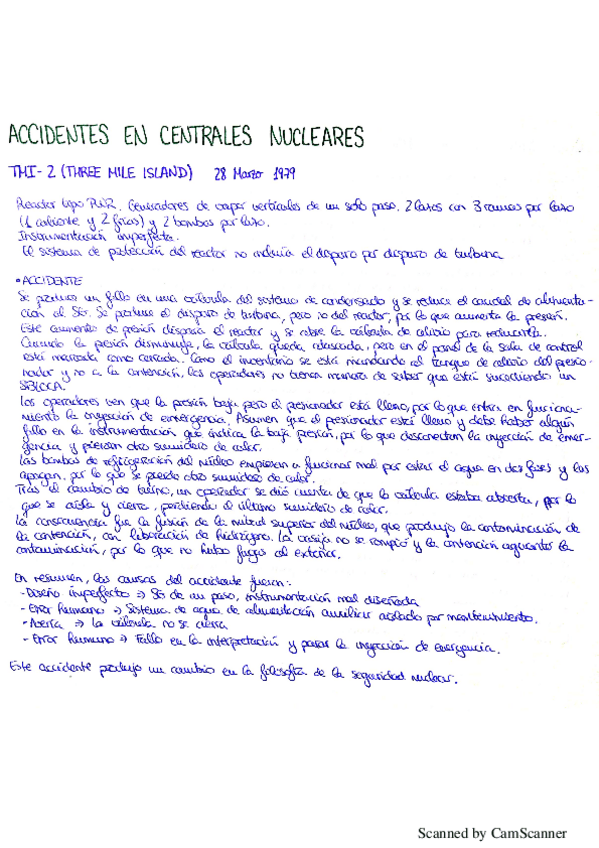 ACCIDENTES EN CENTRALES NUCLEARES
TMI-2 (THREE MILE ISLAND) 28 Marzo 1979
Reactor tipo PWR. Generadores de vapor verticales de un solo paso. 2 lazos con 3 ramas por lazo
(1 caliente y 2 frías) y 2 bombas por lazo.
Instrumentación imperfecta.
El sistema de protección del reactor no incluía el disparo por disparo de turbina
• ACCIDENTE
Se produce un fallo en una válvula del sistema de condensado y se reduce el caudal de alimenta-
ción al SG. Se produce el disparo de turbina, pero no del reactor, por lo que aumenta la presión.
Este aumento de presión dispara el reactor y se abre la válvula de alivio para reducirla.
Cuando la presión disminuye, la válvula queda atascada, pero en el panel de la sala de control
está marcada como cerrada. Como el inventario se está mandando al tanque de relavio del presio-
nador y no a la contención, los operadores no tienen manera de saber que está sucediendo un
SBLOCA.
Los operadores ven que la presión baja pero el presionador está lleno, por lo que entra en funciona-
miento la inyección de emergencia. Asumen que el presionador está lleno y debe haber algún
fallo en la instrumentación que indica la baja presión, por lo que desconectan la inyección de emer-
gencia y pierden otro sumidero de calor.
Las bombas de refrigeración del núcleo empiezan a funcionar mal por estar el agua en dos fases y las
apagan, por lo que se pierde otro sumidero de calor.
Tras el cambio de turno, un operador se dió cuenta de que la válvula estaba abierta, por lo
que se aísla y cierra, perdiendo el último sumidero de calor.
La consecuencia fue la fusión de la mitad superior del núcleo, que produjo la contaminación de
la contención, con liberación de hidrógeno. La vasija no se rompió y la contención aguantó la
contaminación, por lo que no hubo fugas al exterior.
En resumen, las causas del accidente fueron:
- Diseño imperfecto → SG de un paso, instrumentación mal diseñada
- Error humano → Sistema de agua de alimentación auxiliar aislado por mantenimiento.
- Avería → la válvula no se cierra
- Error humano → Fallo en la interpretación y parar la inyección de emergencia.
Este accidente produjo un cambio en la filosofía de la seguridad nuclear.
Scanned by CamScanner